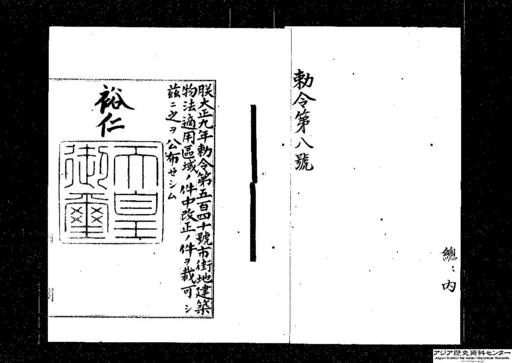 勅令第八號
總、內
朕大正九年勅令第五百四十號市街地建築
物法適用區域ノ件中改正ノ件ヲ裁可シ
茲ニ之ヲ公布セシム
裕仁
天皇
御璽
アジア歴史資料センター
Japan Center for Asian Historical Records